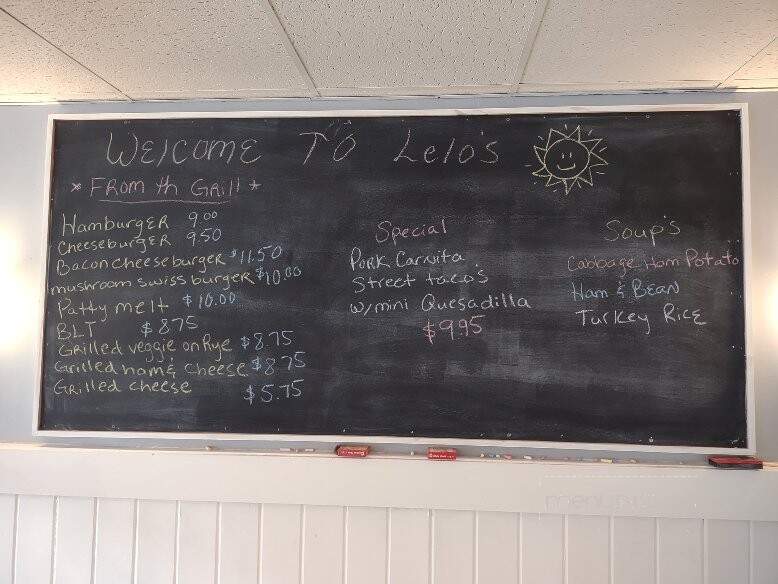 WELCOME TO Lelo's
* FROM th GRill *
HamburgER 9.00
CheeseburgER 9.50
Bacon cheeseburger $11.50
mushroom swiss burger $10.00
Patty melt $10.00
BLT $8.75
Grilled veggie on Rye $8.75
Grilled ham & cheese $8.75
Grilled cheese $5.75
Special
Pork Carnita
Street taco's
w/mini Quesadilla
$9.95
Soup's
Cabbage Ham Potato
Ham & BEAN
Turkey Rice